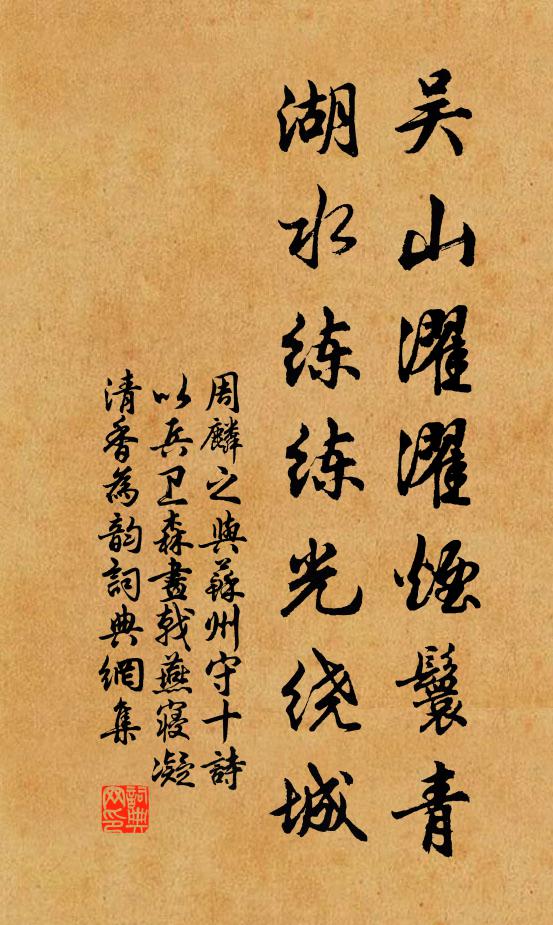 吴山濯濯烟鬟青
湖水练练光绕城
周麟之與蘇州守十詩
以兵卫森畫戟燕寝凝
清香為韵詞典網集
詞典网印